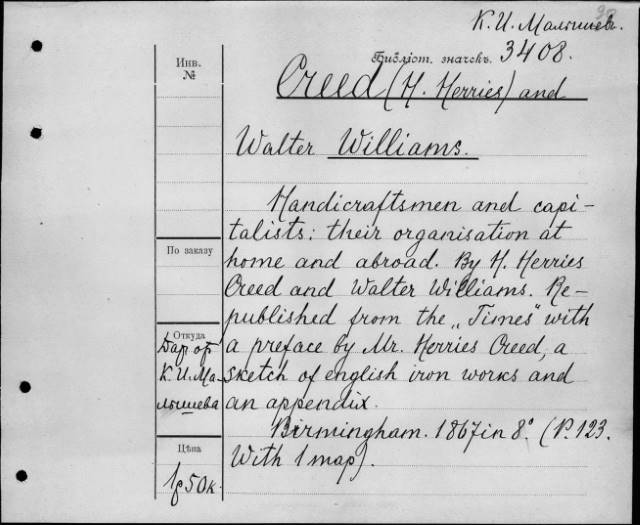 К. И. Малышев.
Библіот. значекъ. 3408.
Инв.
№
Creed (H. Herries) and
Walter Williams.
Handicraftsmen and capi-
talists: their organisation at
По заказу
home and abroad. By H. Herries
Creed and Walter Williams. Re-
published from the „Times" with
Откуда
Дар от
К. И. Ма-
лышева
a preface by Mr. Herries Creed, a
sketch of english iron works and
an appendix.
Birmingham. 1867 in 8.° (P. 123.
With 1 map).
Цѣна
1р 50к.